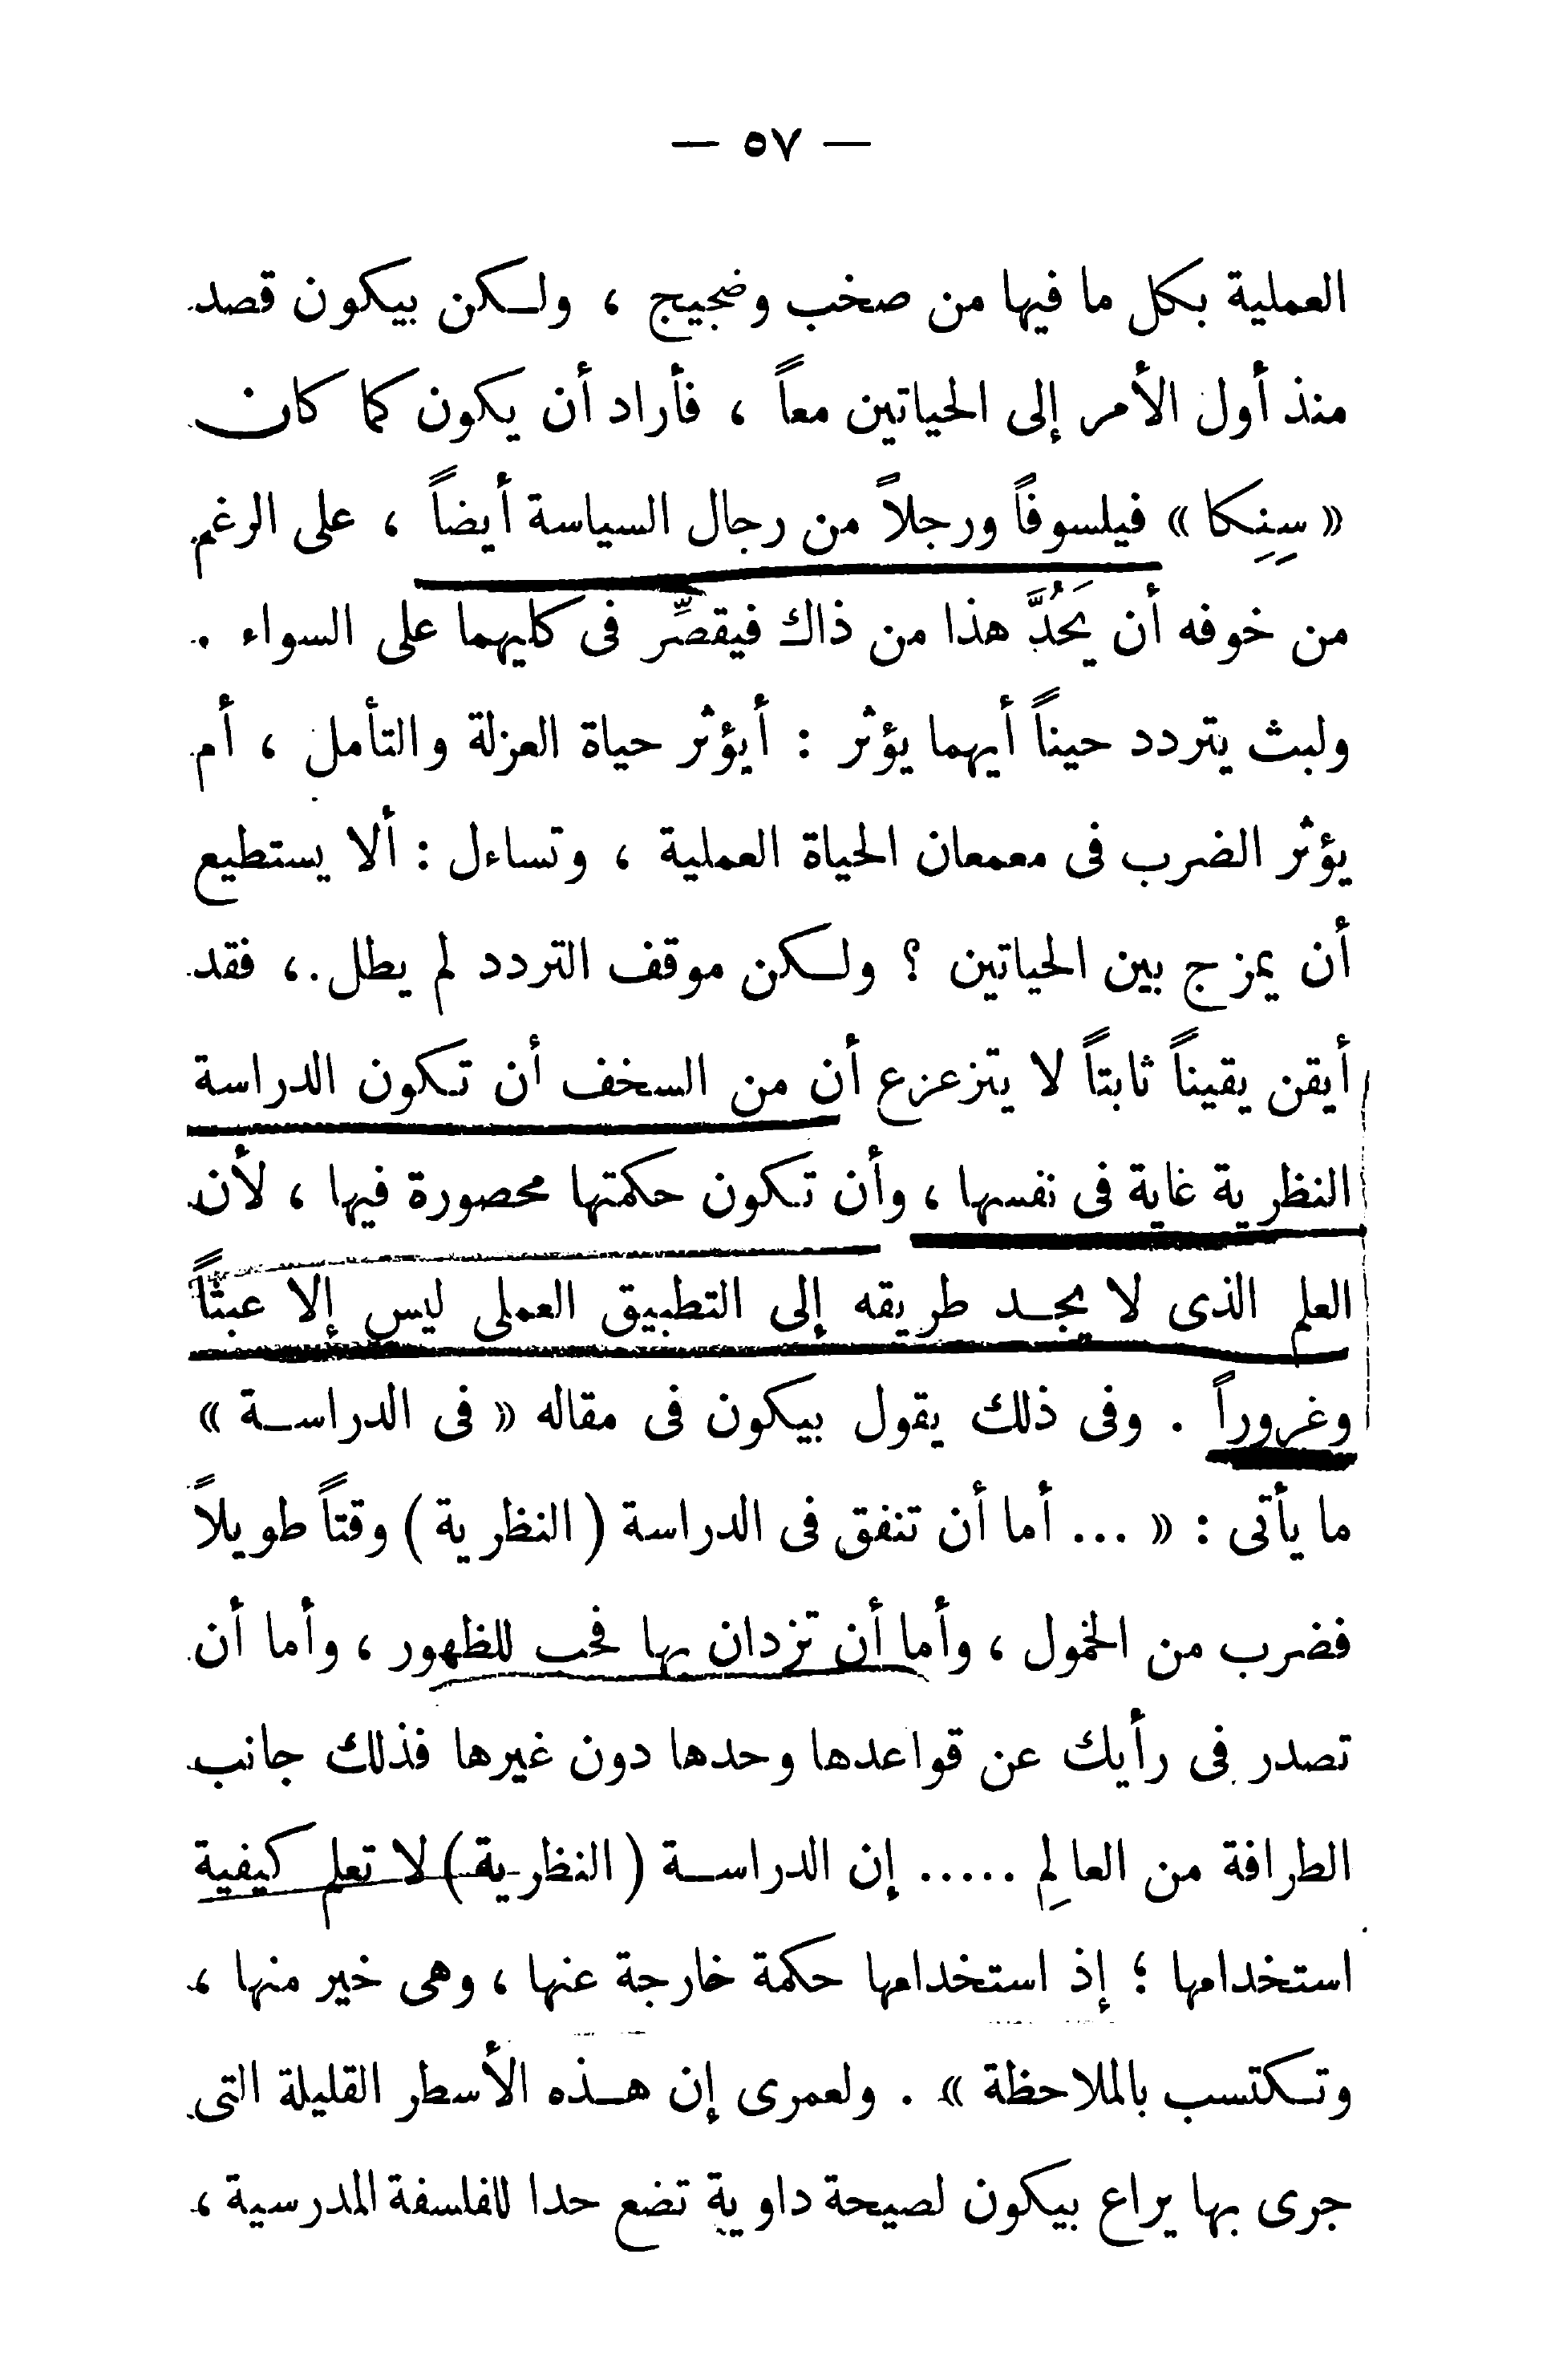 — ٥٧ —
العملية بكل ما فيها من صخب وضجيج ، ولكن بيكون قصد
منذ أول الأمر إلى الحياتين معاً ، فأراد أن يكون كما كان
« سِنِكا » فيلسوفاً ورجلاً من رجال السياسة أيضاً ، على الرغم
من خوفه أن يَحُدَّ هذا من ذاك فيقصِّر فى كليهما على السواء .
ولبث يتردد حيناً أيهما يؤثر : أيؤثر حياة العزلة والتأمل ، أم
يؤثر الضرب فى معمعان الحياة العملية ، وتساءل : ألا يستطيع
أن يمزج بين الحياتين ؟ ولكن موقف التردد لم يطل ، فقد
أيقن يقيناً ثابتاً لا يتزعزع أن من السخف أن تكون الدراسة
النظرية غاية فى نفسها ، وأن تكون حكمتها محصورة فيها ، لأن
العلم الذى لا يجد طريقه إلى التطبيق العملى ليس إلا عبثاً
وغروراً . وفى ذلك يقول بيكون فى مقاله « فى الدراسة »
ما يأتى : « ... أما أن تنفق فى الدراسة ( النظرية ) وقتاً طويلاً
فضرب من الخمول ، وأما أن تزدان بها فحب للظهور ، وأما أن
تصدر فى رأيك عن قواعدها وحدها دون غيرها فذلك جانب
الطرافة من العالِم ..... إن الدراسة ( النظرية ) لا تعلم كيفية
استخدامها ؛ إذ استخدامها حكمة خارجة عنها ، وهى خير منها ،
وتكتسب بالملاحظة » . ولعمرى إن هذه الأسطر القليلة التى
جرى بها يراع بيكون لصيحة داوية تضع حدا للفلسفة المدرسية ،